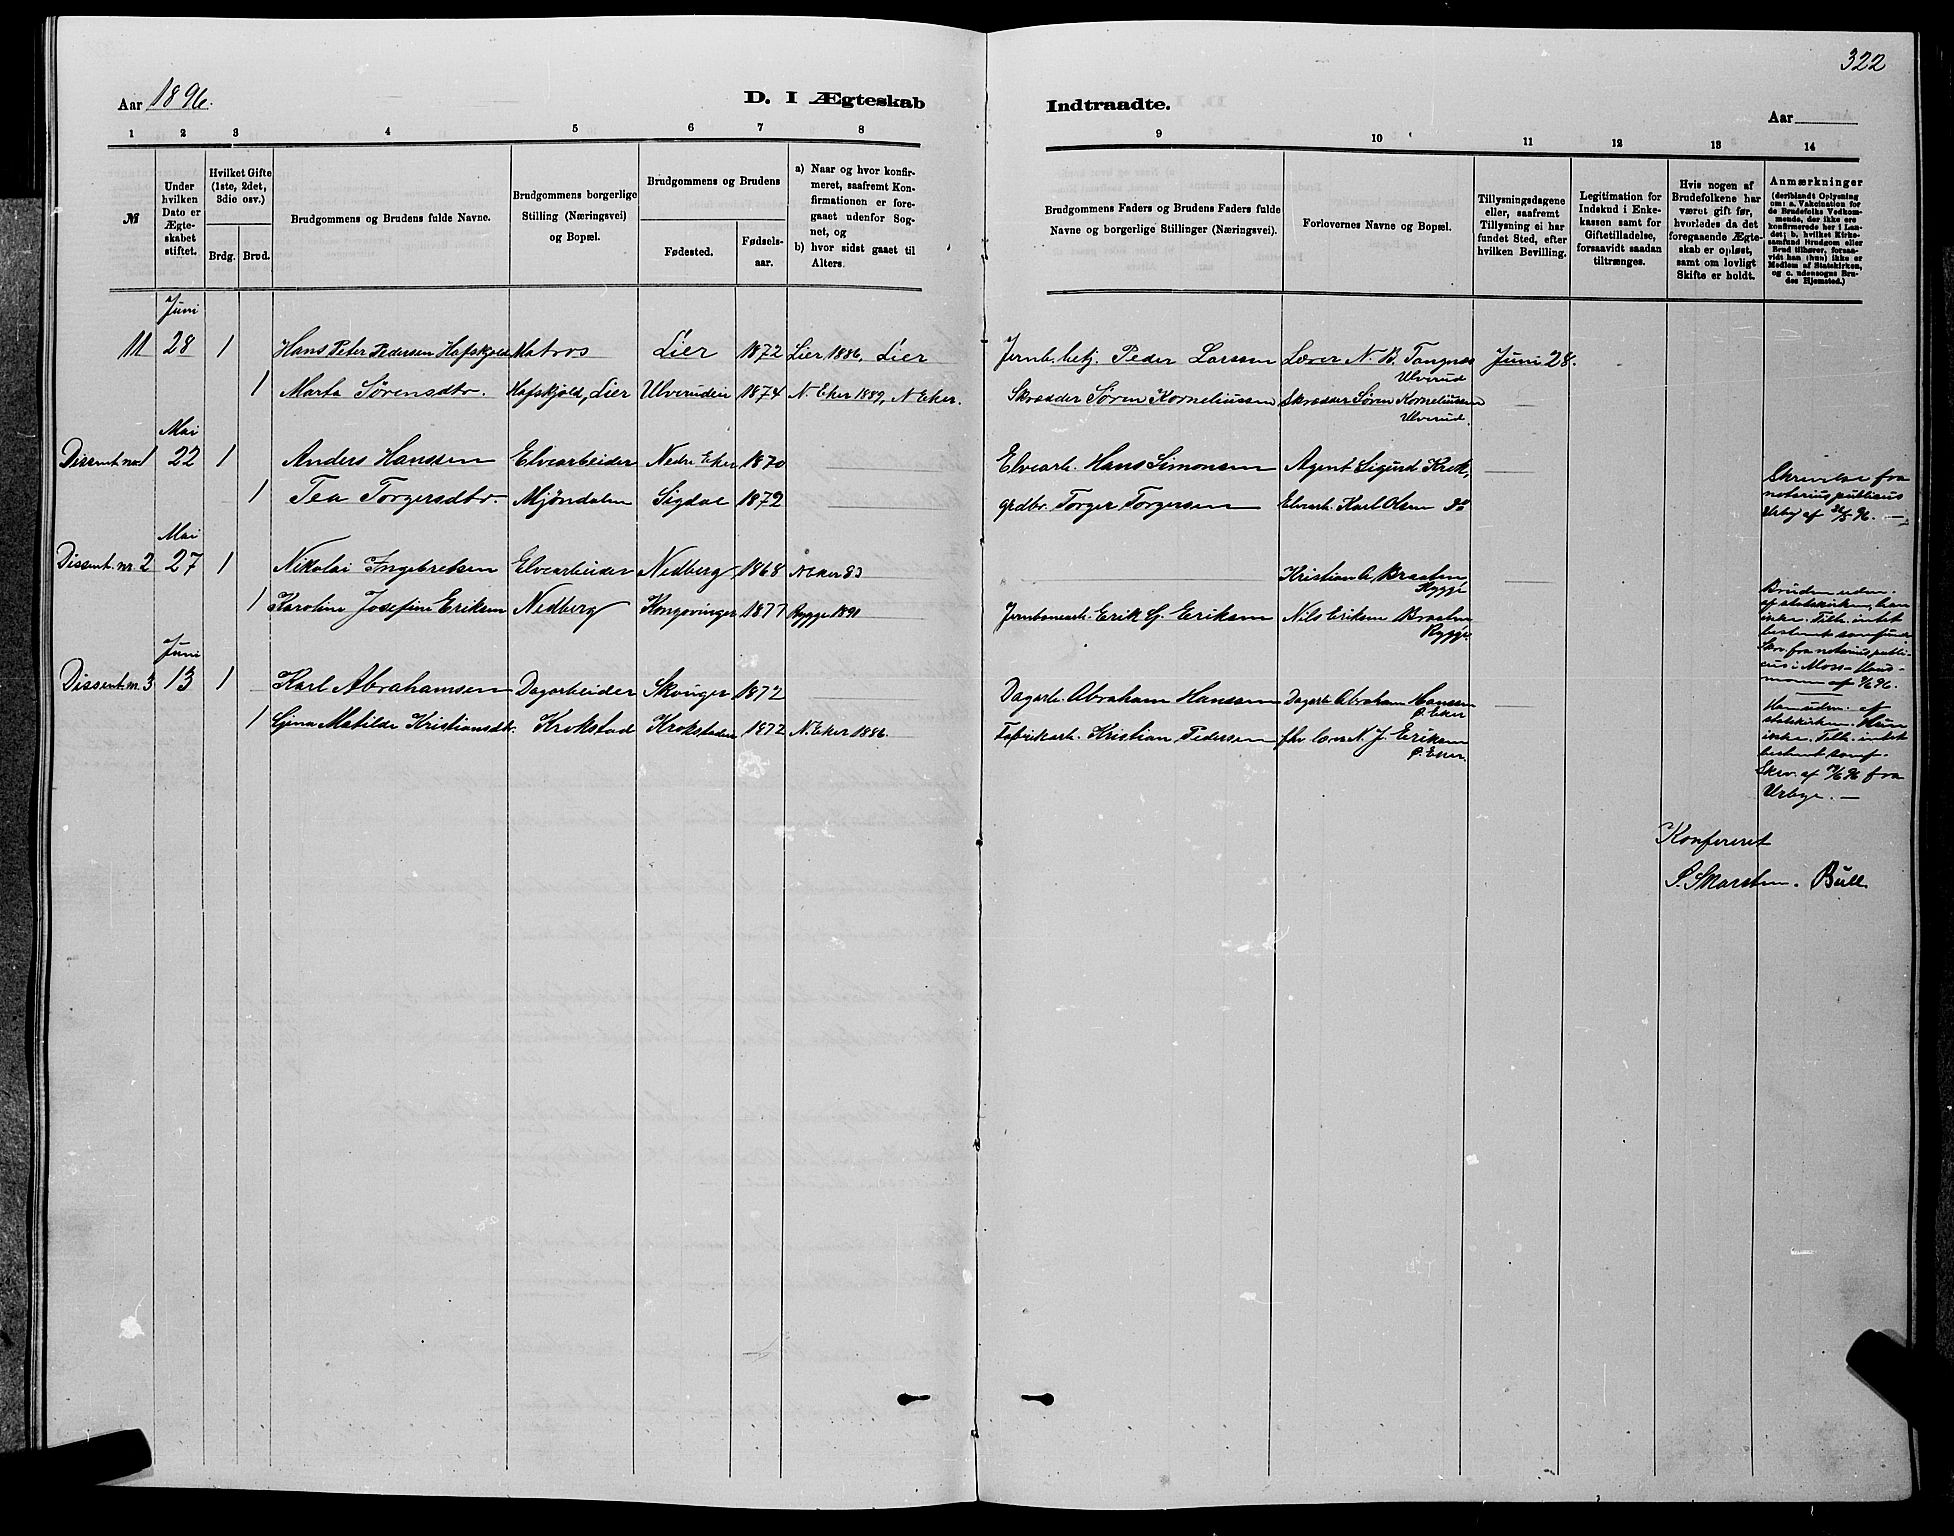 322
Aar 1896.
D. I Ægteskab
Indtraadte.
Aar
1 2 3 4 5 6 7 8
9 10 11 12 13 14
№
Under hvilken Dato er Ægteskabet stiftet.
Hvilket Gifte (1ste, 2det, 3die osv.)
Brdg. Brud.
Brudgommens og Brudens fulde Navne.
Brudgommens borgerlige Stilling (Næringsvei) og Bopæl.
Brudgommens og Brudens
Fødested. Fødselsaar.
a) Naar og hvor konfirmeret, saafremt Konfirmationen er foregaaet udenfor Sognet, og
b) hvor sidst gaaet til Alters.
Brudgommens Faders og Brudens Faders fulde Navne og borgerlige Stillinger (Næringsvei).
Forlovernes Navne og Bopæl.
Tillysningsdagene eller, saafremt Tillysning ei har fundet Sted, efter hvilken Bevilling.
Legitimation for Indskud i Enkekassen samt for Giftetilladelse, forsaavidt saadan tiltrænges.
Hvis nogen af Brudefolkene har været gift før, hvorledes da det foregaaende Ægteskab er opløst, samt om lovligt Skifte er holdt.
Anmærkninger
(deriblandt Oplysning om: a. Vakcination for de Brudefolks Vedkommende, der ikke ere konfirmerede her i Landet; b. hvilket Kirkesamfund Brudgom eller Brud tilhører, forsaavidt han (hun) ikke er Medlem af Statskirken, og c. udensogns Brudes Hjemsted.)
Juni
11 28 1 Hans Peter Pedersen Hafskjold Matros Lier 1872 Lier 1886, Lier Jernb. betj. Peder Larsen Lærer N. B. Tangnæs Ulverud Juni 28.
1 Marta Sørensdtr. Hafskjold, Lier Ulveruden 1874 N. Eker 1889, N Eker. Skrædder Søren Korneliussen Skrædder Søren Korneliussen Ulverud.
Mai
Dissent. nr 1 22 1 Anders Hanssen Elvearbeider Nedre Eker 1870 Elvearb. Hans Simonsen Agent Sigurd Krok,
1 Tea Torgersdtr. Mjöndalen Sigdal 1872 grdbr. Torger Torgersen Elvearb. Karl Olsen do
Skrivelse fra
notarius publicus
Urby af 96.
Mai
Dissent. nr. 2 27 1 Nikolai Ingebretsen Elvearbeider Nedberg 1868 N Eker 83 Kristian A Braaten Rygge
1 Karoline Josefine Eriksen Nedberg Kongsvinger 1877 Rygge 1891 Jernbanearb. Erik G. Eriksen Nils Eriksen Braaten Rygge.
Bruden uden-
af statskirken, han
ikke. Tilh. intet
bestemt samfund
Skr. fra notarius publi-
cus i Moss
af 96.
Juni
Dissent nr. 3 13 1 Karl Abrahamsen Dagarbeider Skotselv 1872 Dagarb. Abraham Hanssen Dagarb. Abraham Hanssen Ø. Eker
1 Gjina Matilde Kristiansdtr. Krokstad Krokstaden 1872 N. Eker 1886. Fabrikarb. Kristian Pedersen fhv lærer N. J. Eriksen Ø. Eker.
Han uden- af
statskirken. Hun
ikke. Tilh. intet
bestemt samf.
Skriv. af 96 fra
Urbye. —
Konfereret
Bull